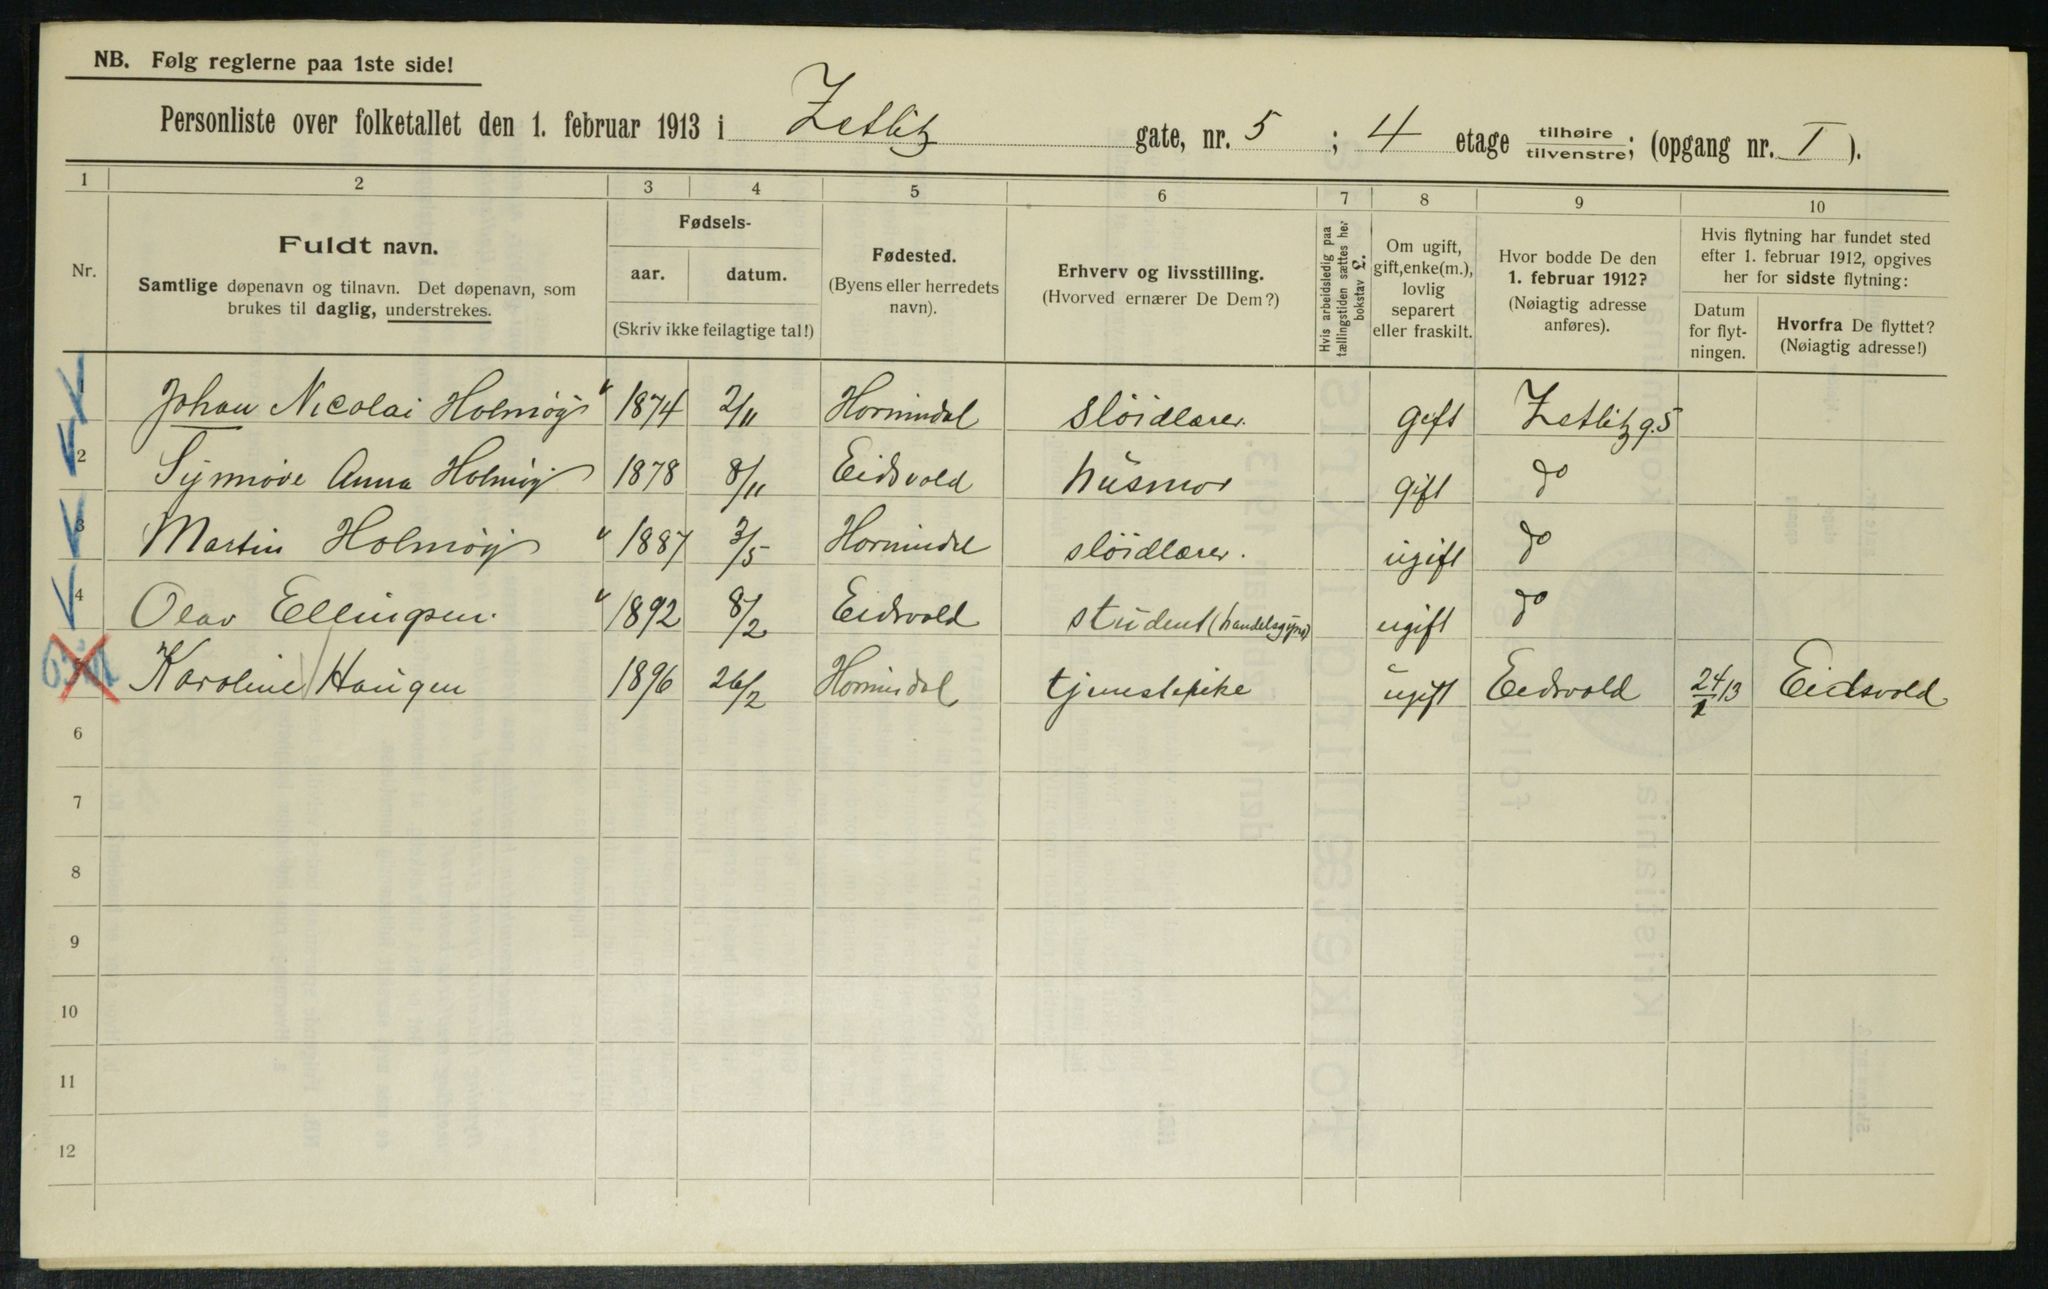 NB. Følg reglerne paa 1ste side!
Personliste over folketallet den 1. februar 1913 i Zetlitz gate, nr. 5 ; 4 etage tilhøire / tilvenstre; (opgang nr. I ).
1 2 3 4 5 6 7 8 9 10
Nr.
Fuldt navn.
Samtlige døpenavn og tilnavn. Det døpenavn, som
brukes til daglig, understrekes.
Fødsels-
aar. datum.
(Skriv ikke feilagtige tal!)
Fødested.
(Byens eller herredets
navn).
Erhverv og livsstilling.
(Hvorved ernærer De Dem?)
Hvis arbeidsledig paa
tællingstiden sættes her
bokstav L.
Om ugift,
gift, enke(m.),
lovlig
separert
eller fraskilt.
Hvor bodde De den
1. februar 1912?
(Nøiagtig adresse
anføres).
Hvis flytning har fundet sted
efter 1. februar 1912, opgives
her for sidste flytning:
Datum
for flyt-
ningen.
Hvorfra De flyttet?
(Nøiagtig adresse!)
1 Johan Nicolai Holmøy 1874 2/11 Hornindal sløidlærer. gift Zetlitz g. 5
2 Synnøve Anna Holmøy 1878 8/11 Eidsvold husmor gift do
3 Martin Holmøy 1887 3/5 Hornindal sløidlærer. ugift do
4 Olav Ellingsen. 1892 8/2 Eidsvold student (handelsgymn) ugift do
5 Karoline Haugen 1896 26/2 Hornindal tjenestepike ugift Eidsvold 24/1 13 Eidsvold
6
7
8
9
10
11
12